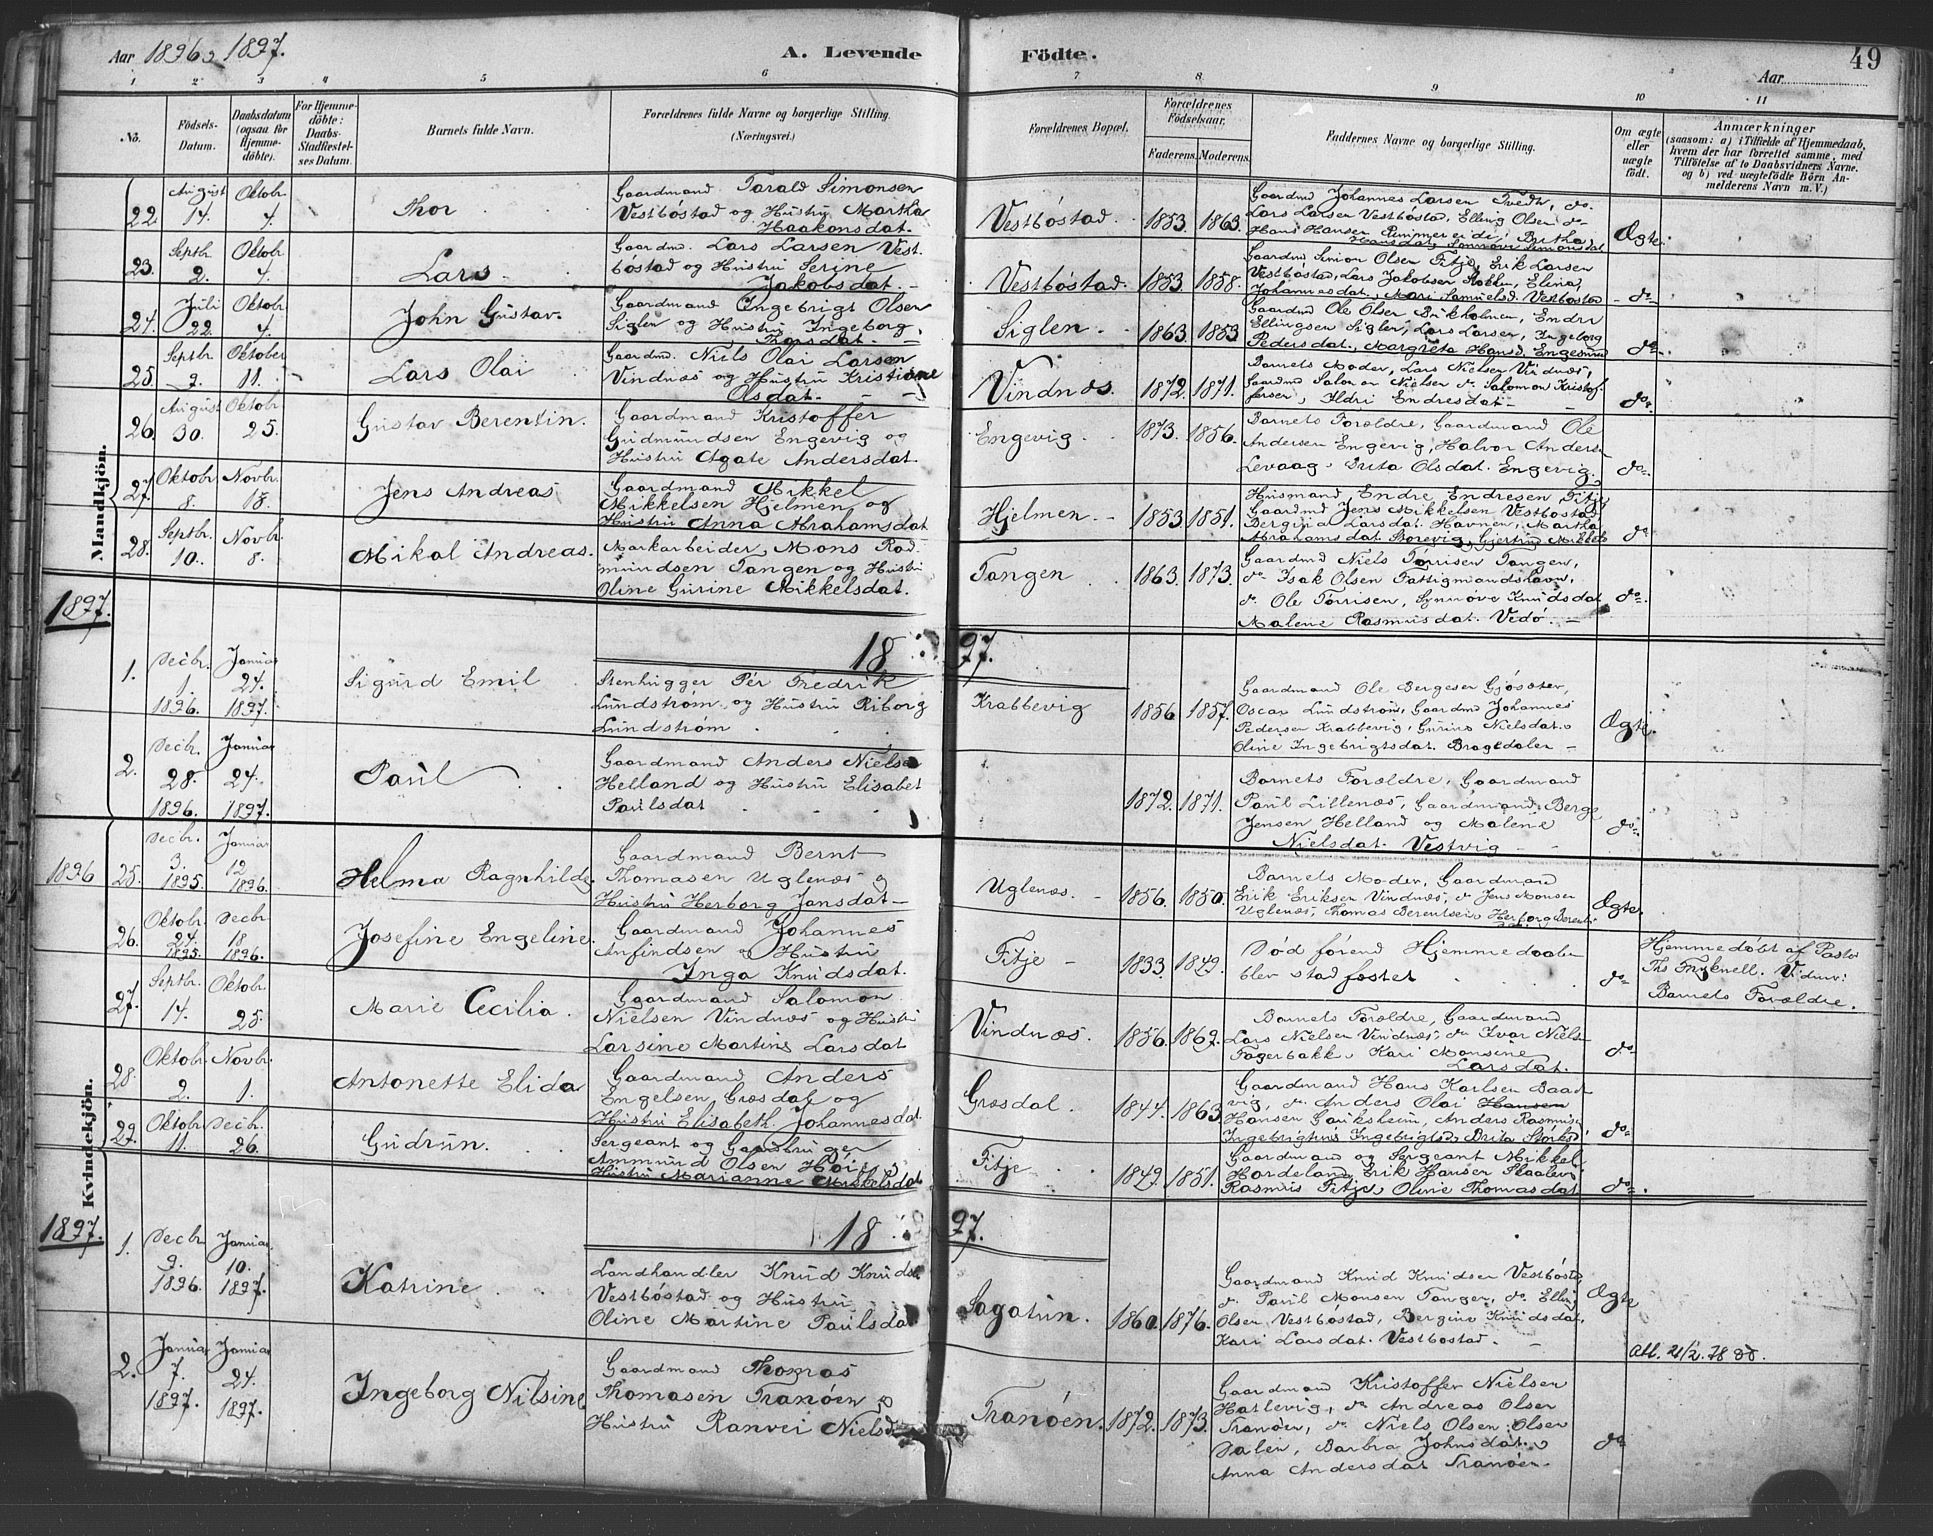 Aar 1896 og 1897.
A. Levende
Födte.
49
Aar
1 2 3 4 5 6 7 8 9 10 11
No.
Födsels-Datum.
Daabsdatum (ogsaa for Hjemmedöbte).
For Hjemmedöbte: Daabs-Stadfæstelses Datum.
Barnets fulde Navn.
Forældrenes fulde Navne og borgerlige Stilling. (Næringsvei.)
Forældrenes Bopæl.
Forældrenes Födselsaar.
Faderens. Moderens.
Faddernes Navne og borgerlige Stilling.
Om ægte eller uægte födt.
Anmærkninger
(saasom: a) i Tilfælde af Hjemmedaab, hvem der har forrettet samme, med Tilföielse af to Daabsvidners Navne. og b) ved uægtefödte Börn Anmelderens Navn m. V.)
Mandkjön.
22. August 14. Oktobr. 4. Thor
Gaardmand Tarald Simonsen
Vestböstad og Hustru Martha
Haakonsdat.
Vestböstad. 1853. 1863.
Gaardmd Johannes Larsen Tvedt, do.
Lars Larsen Vestbösta, Elling Olsen do
Hans Hansen Rimmereide, Britha
Hansdat, Synnöve Simonsdat
Ægte.
23. Septbr. 2. Oktobr. 4. Lars
Gaardmd. Lars Larsen Vest-
böstad og Hustru Serine
Jakobsdat.
Vestböstad. 1853. 1858.
Gaardmd Simon Olsen Fitje, Erik Larsen
Vestböstad, Lars Jakobsen Stokken, Elina
Johannesdat, Mari Samuelsd. Vestbösta
do
24. Juli 22. Oktobr. 4. John Gustav.
Gaardmand Ingebrigt Olsen
Siglen og Hustru Ingeborg
Larsdat.
Siglen. 1863. 1853
Gaardmd Ole Olsen Eikholmen, Endre
Ellingsen Siglen, Lars Larsen, Ingeborg
Pedersdat., Margreta Hansd. Engesund
do
25. Septbr. 2. Oktober 11. Lars Olai
Gaardmd. Niels Olai Larsen
Vindnæs og Hustru Kristiane
Olsdat.
Vindnæs. 1872. 1871.
Barnets Moder, Lars Nielsen Vindnæs,
Gaardmd Salomon Nielsen do Salomon Kristof-
fersen, Ildri Endresdat
do
26. August 30. Oktobr. 25. Gustav Berentin.
Gaardmand Kristoffer
Gudmundsen Engevig og
Hustru Agate Andersdat.
Engevig. 1873. 1856.
Barnets Forældre, Gaardmand Ole
Andersen Engevig, Halvor Anders.
Levaag, Brita Olsdat. Engevig.
do
27. Oktobr. 8. Novbr. 15. Jens Andreas
Gaardmand Mikkel
Mikkelsen Hjelmen og
Hustru Anna Abrahamsdat
Hjelmen. 1853. 1851.
Husmand Endre Endresen Fitje
Gaardmd Jens Mikkelsen Vestböstad
Bergitta Larsdat. Havnen, Martha
Abrahamsdat Storevig, Gjertine Mikkels
do
28. Septbr. 10. Novbr. 8. Mikal Andreas.
Markarbeider Mons Rad-
mundsen Tangen og Hustru
Oline Gurine Mikkelsdat.
Tangen 1863. 1873.
Gaardmd Niels Torrisen Tangen,
do Isak Olsen Fattigmandshavn,
do. Ole Torrisen, Synnöve Knudsdat
Malene Rasmusdat. Vedö.
do.
1897.
1897.
1. Decbr. 1. 1896. Januar 24. 1897. Sigurd Emil
Stenhugger Per Fredrik
Lundström og Hustru Riborg
Lundström
Krabbevig 1856. 1857.
Gaardmand Ole Bergesen Gjösæter,
Oscar Lundström, Gaardmd Johannes
Pedersen Krabbevig, Gurine Nielsdat.
Oline Ingebrigtsdat. Bragedalen
Ægte.
2. Decbr. 28. 1896. Januar 24. 1897. Paul
Gaardmand Anders Nielsen
Helland og Hustru Elisabet
Paulsdat
1872. 1871.
Barnets Forældre, Gaardmand
Paul Lillenæs, Gaardmand Berge
Jensen Helland og Malene
Nielsdat. Vestvig
do
Kvindekjön.
1896 25. Decbr. 3. 1895. Januar 12 1896. Helma Ragnhilde.
Gaardmand Bernt
Thomasen Uglenæs og
Hustru Herborg Jansdat
Uglenæs. 1856. 1850.
Barnets Moder, Gaardmand
Erik Eriksen Vindnæs, do Jens Monsen
Uglenæs, Thomas Berentsen, Herborg Berents
Ægte.
26. Oktobr. 24. 1895. Decbr. 18 1896. Josefine Engeline.
Gaardmand Johannes
Anfindsen og Hustru
Inga Knudsdat.
Fitje 1833. 1849.
Död förend Hjemmedaaben
blev stadfæstet
do
Hjemmedöbt af Pastor
Ths Fryknell. Vidner:
Barnets Forældre.
27. Septbr. 14. Oktobr. 25. Marie Cecilia.
Gaardmand Salomon
Nielsen Vindnæs og Hustru
Larsine Martine Larsdat
Vindnæs. 1856. 1862.
Barnets Forældre, Gaardmand
Lars Nielsen Vindnæs, do Ivar Niels
Fagerbakk, Kari Monsine
Larsdat.
do
28. Oktobr. 2. Novbr. 1. Antonette Elida
Gaardmand Anders
Engelsen Græsdal og
Hustru Elisabeth Johannesdat
Græsdal. 1844. 1863.
Gaardmand Hans Karlsen Baad-
vig, do Anders Olai Hansen
Hansen Gauksheim, Anders Rasmus
Ingebrigtine Ingebrigtsd, Brita Störksd
do
29. Oktobr. 11. Decbr. 26. Gudrun.
Sergeant og Gaardbruger
Ammund Olsen Höie
Hustru Marianne Mikkelsdat
Fitje 1849. 1851.
Gaardmand og Sergeant Mikkel
Hordeland, Erik Hansen Skaalevi
Rasmus Fitje, Oline Thomasdat
do
1897.
1897.
1. Decbr. 9. 1896. Januar 10. 1897. Katrine
Landhandler Knud Knuds.
Vestböstad og Hustru
Oline Martine Paulsdat
Sagatun. 1860. 1876.
Gaardmand Knud Knudsen Vestbösta,
do Paul Monsen Tangen, do Elling
Olsen Vestböstad, Bergine Knudsdat,
Kari Larsdat. Vestböstad.
Ægte
Att. 21/2.78
2. Januar 7. 1897. Januar 24. 1897. Ingeborg Nilsine
Gaardmand Thomas
Thomasen Tranöen og
Hustru Ranvei Nielsd
Tranöen. 1872. 1873.
Gaardmand Kristoffer Nielsen
Hatlevig, do Andreas Olsen
Tranöen, do Niels Olsen Olsen
Dalen, Barbra Johnsdat.
Anna Andersdat Tranöen.
do